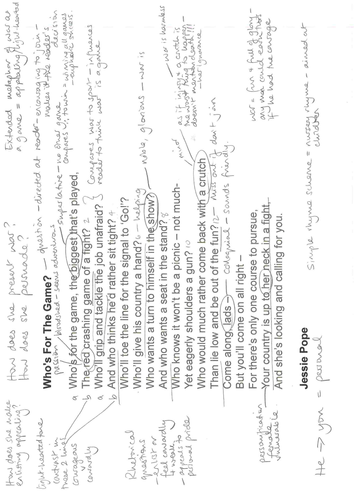 How does she make enlisting appealing?
How does she present war?
How does she persuade?
Extended metaphor of war as a game = appealing/light-hearted
Who's For The Game?
Who's for the game, the biggest that's played,
The red crashing game of a fight?
Who'll grip and tackle the job unafraid?
And who thinks he'd rather sit tight?
Who'll toe the line for the signal to 'Go!'?
Who'll give his country a hand?
Who wants a turn to himself in the show?
And who wants a seat in the stand?
Who knows it won't be a picnic – not much-
Yet eagerly shoulders a gun?
Who would much rather come back with a crutch
Than lie low and be out of the fun?
Come along, lads –
But you'll come on all right –
For there's only one course to pursue,
Your country is up to her neck in a fight,
And she's looking and calling for you.
Jessie Pope
light-hearted tone
contrast in these 2 lines
courageous
v
cowardly
Rhetorical questions
feel cowardly & weak
appeals to personal pride
personification
female
vulnerable
He → you = personal
question - directed at reader - encouraging to join - makes it the reader's decision
Compares war to sport - influences reader to think war is a game
helping
noble, glorious - war is
miss out if don't join
colloquial - sounds friendly
war = fun & full of glory - any man could reach this if he had the courage
simple rhyme scheme = nursery rhyme - aimed at children